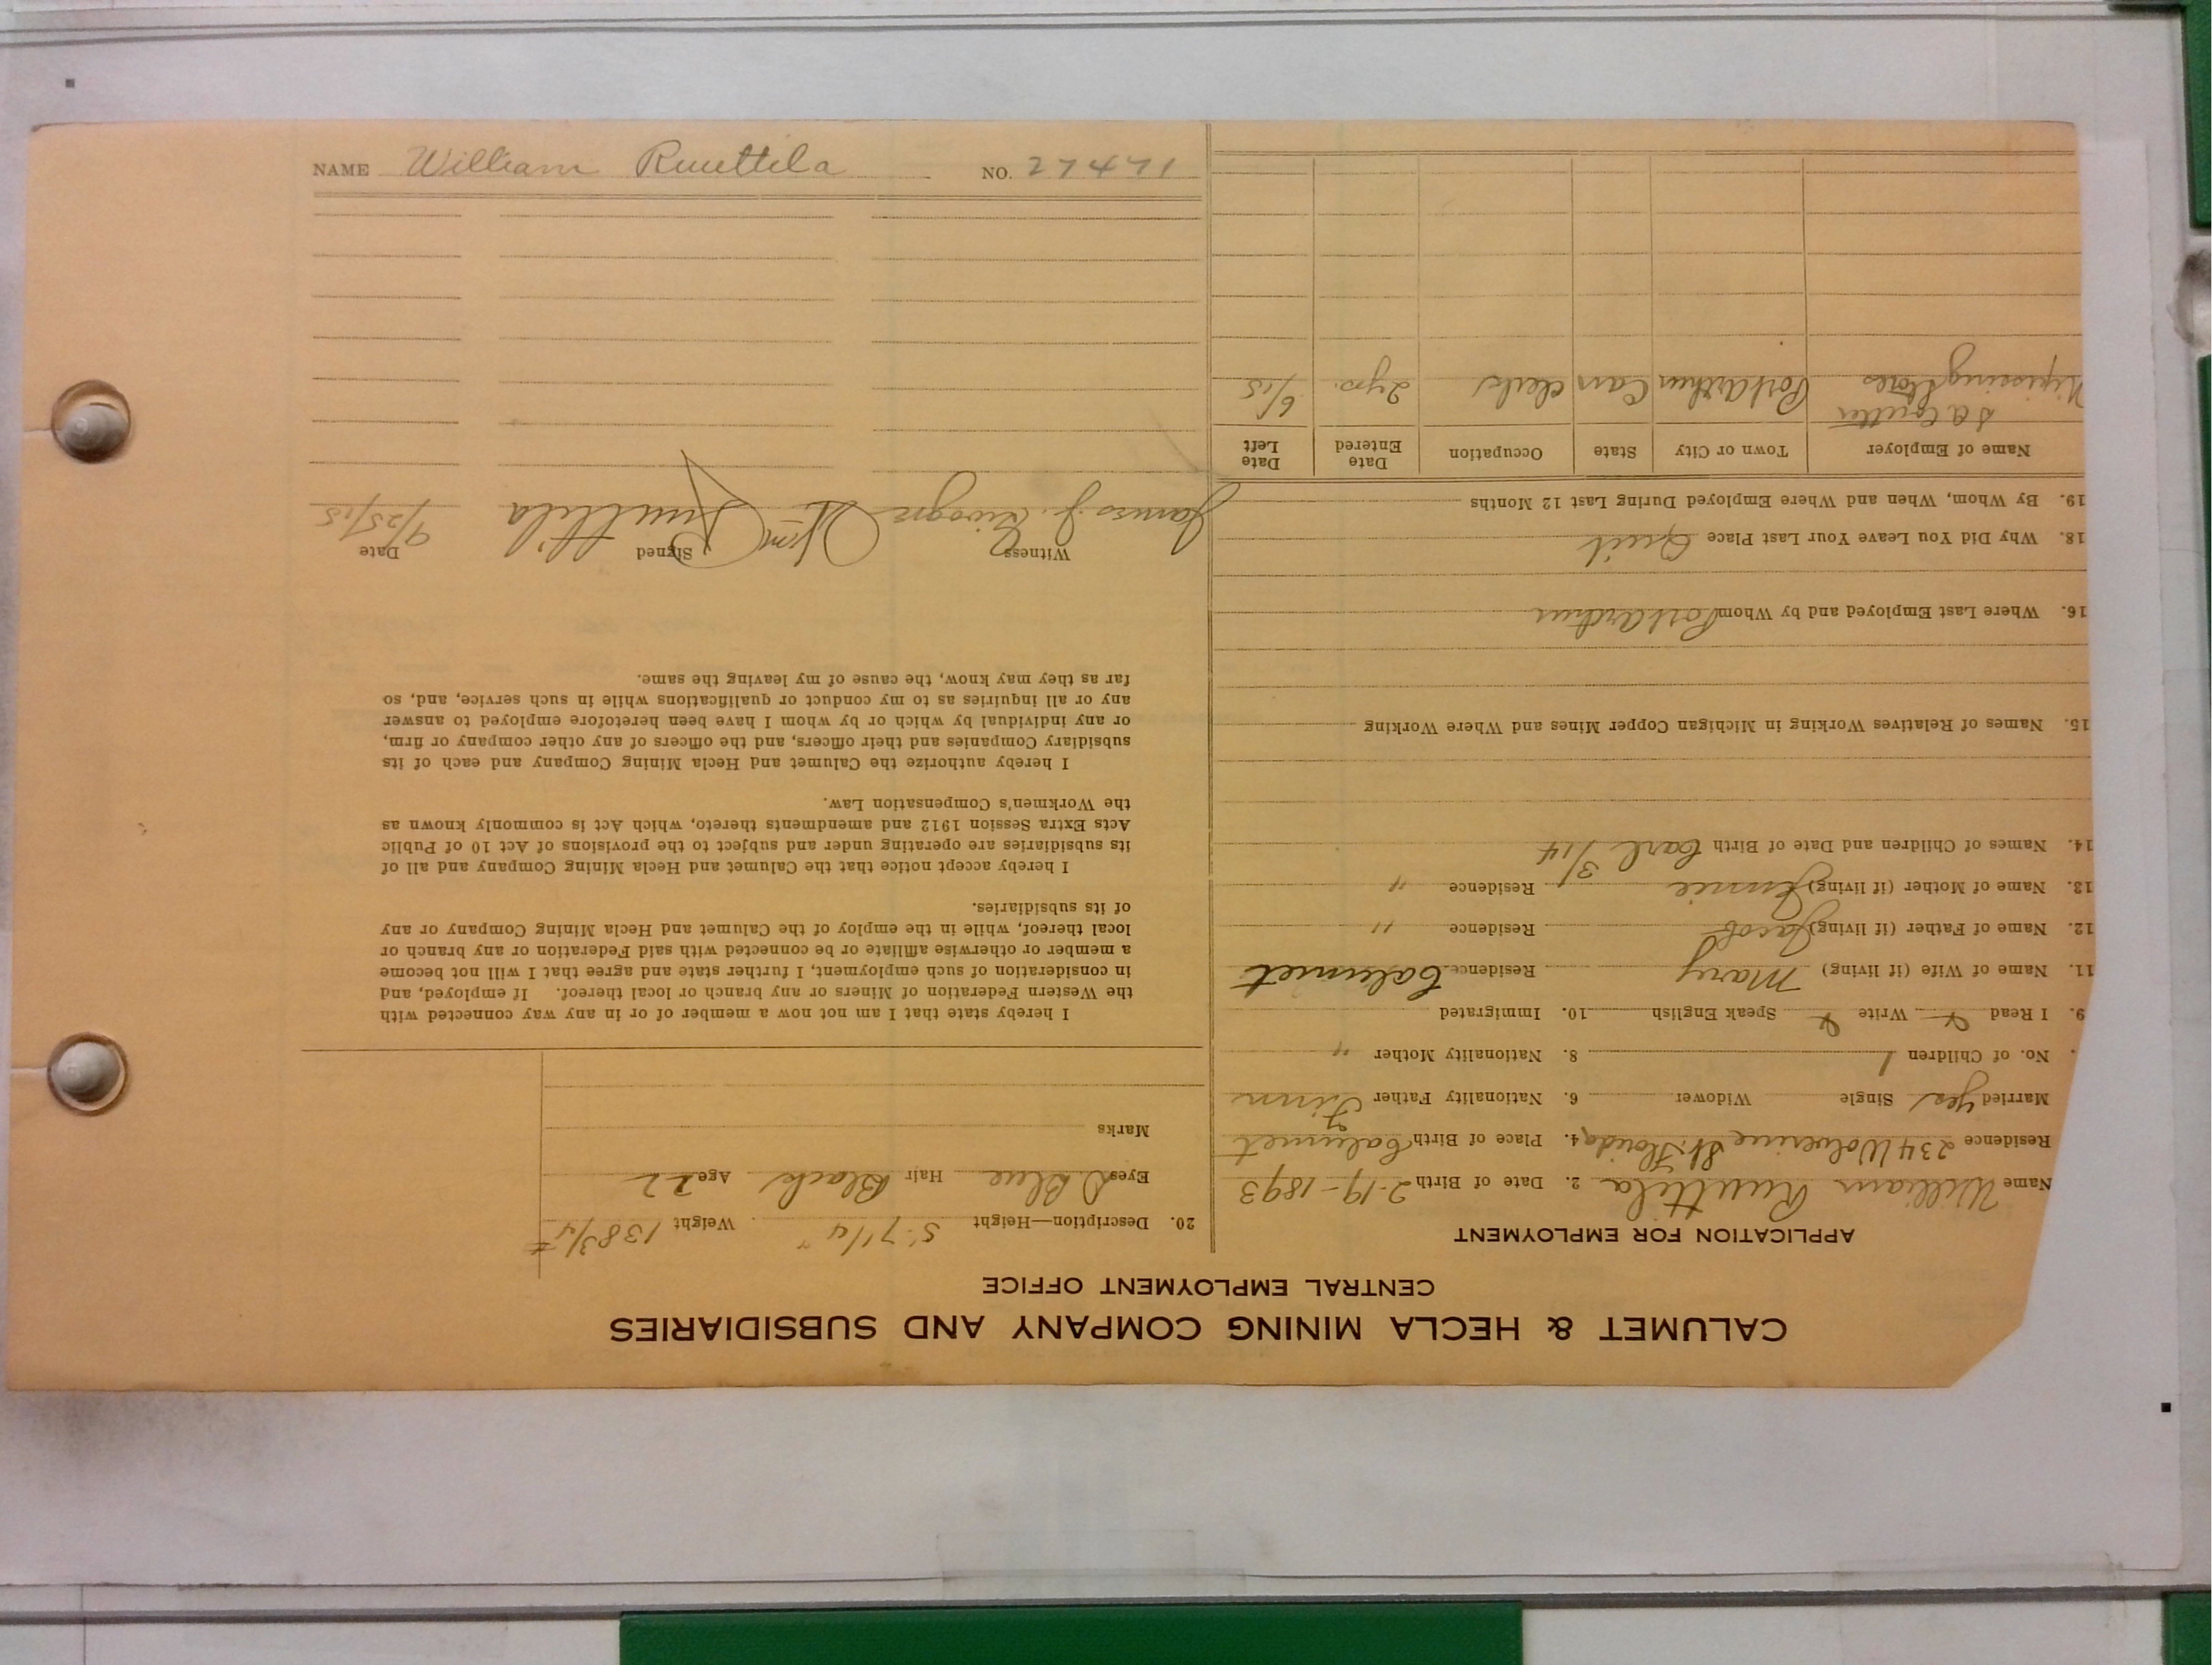 CALUMET & HECLA MINING COMPANY AND SUBSIDIARIES
CENTRAL EMPLOYMENT OFFICE
APPLICATION FOR EMPLOYMENT
Name William Ruuttila 2. Date of Birth 2-19-1893
Residence 234 Wolverine St. Florida 4. Place of Birth Calumet
Married Yes Single Widower 6. Nationality Father Finn
No. of Children 1 8. Nationality Mother "
9. I Read Write Speak English 10. Immigrated
11. Name of Wife (if living) Mary Residence Calumet
12. Name of Father (if living) Jacob Residence "
13. Name of Mother (if living) Jennie Residence "
14. Names of Children and Date of Birth Carl 3/14
15. Names of Relatives Working in Michigan Copper Mines and Where Working
16. Where Last Employed and by Whom Port Arthur
18. Why Did You Leave Your Last Place Quit
19. By Whom, When and Where Employed During Last 12 Months
Name of Employer Town or City State Occupation Date Entered Date Left
S A Coulter
Nipissing Stores Port Arthur Can Clerk 2 yrs. 6/15
20. Description—Height 5' 7 1/4" Weight 138 3/4 #
Eyes D Blue Hair Black Age 22
Marks
I hereby state that I am not now a member of or in any way connected with
the Western Federation of Miners or any branch or local thereof. If employed, and
in consideration of such employment, I further state and agree that I will not become
a member or otherwise affiliate or be connected with said Federation or any branch or
local thereof, while in the employ of the Calumet and Hecla Mining Company or any
of its subsidiaries.
I hereby accept notice that the Calumet and Hecla Mining Company and all of
its subsidiaries are operating under and subject to the provisions of Act 10 of Public
Acts Extra Session 1912 and amendments thereto, which Act is commonly known as
the Workmen's Compensation Law.
I hereby authorize the Calumet and Hecla Mining Company and each of its
subsidiary Companies and their officers, and the officers of any other company or firm,
or any individual by which or by whom I have been heretofore employed to answer
any or all inquiries as to my conduct or qualifications while in such service, and, so
far as they may know, the cause of my leaving the same.
Witness Signed Date
James J. Wm Ruuttila 9/25/15
NAME William Ruuttila NO. 27471